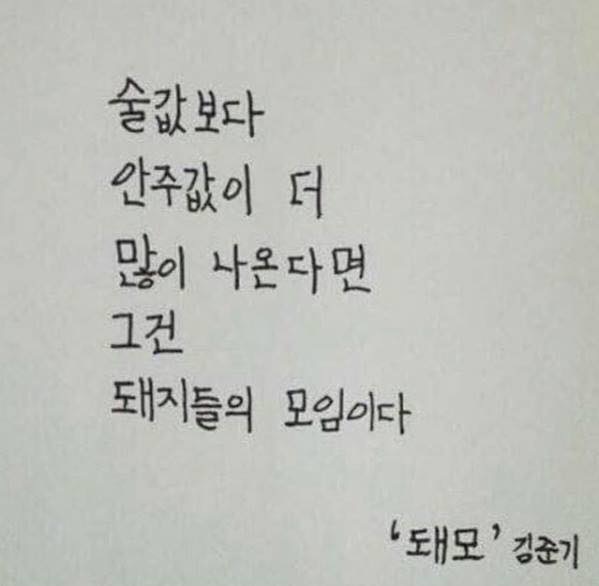 술값보다
안주값이 더
많이 나온다면
그건
돼지들의 모임이다
‘돼모’ 김준기